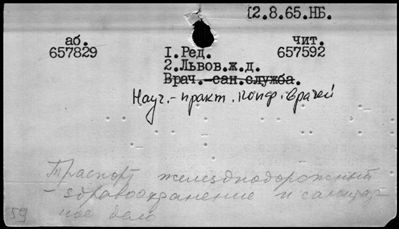 12.8.65.НБ.
аб. чит.
657829 1.Ред. 657592
2.Львов.ж.д.
Врач.-сан.служба.
Науч.-практ. конф. врачей
Транспорт железнодорожный
- здравоохранение и санитар-
ное дело
59